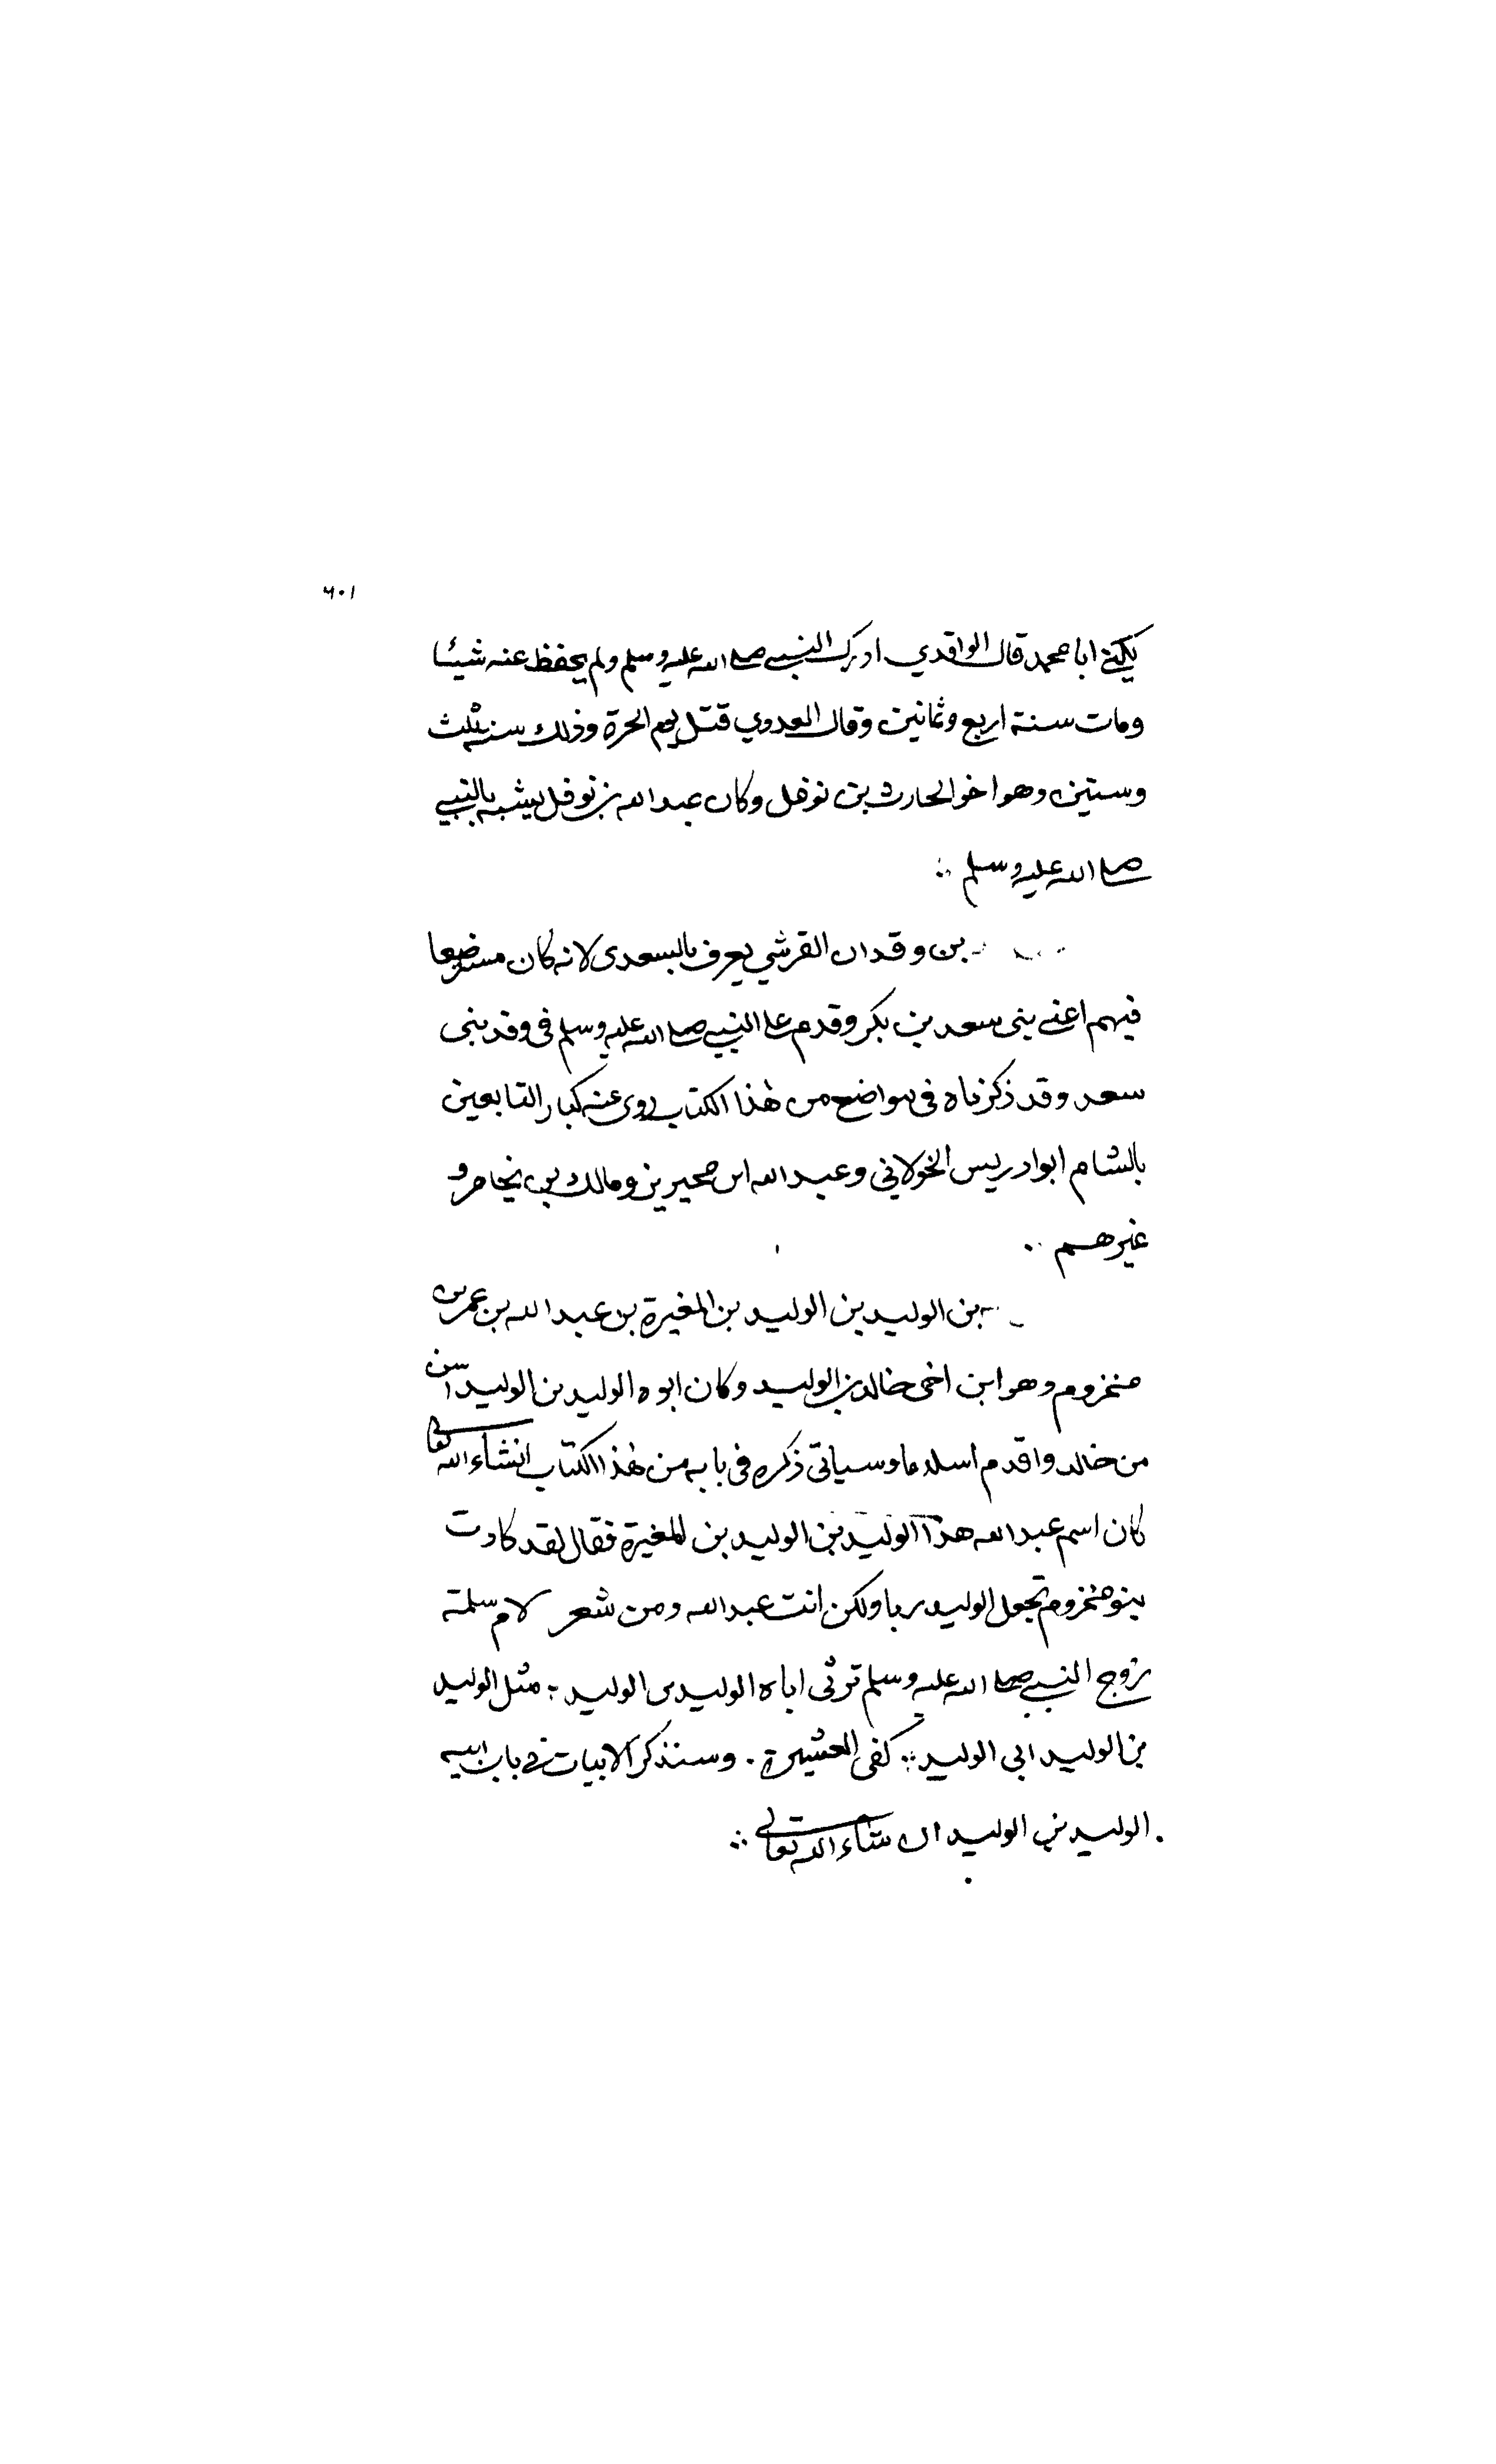 ٦٠١
يكنى ابا محمد قال الواقدي ادرك النبي صلى الله عليه وسلم ولم يحفظ عنه شيئا
ومات سنة اربع وثمانين وقال العدوي قتل يوم الحرة وذلك سنة ثلث
وستين وهو اخو الحارث بن نوفل وكان عبد الله بن نوفل يشبه بالنبي
صلى الله عليه وسلم
بن وقدان القرشي يعرف بالسعدى لانه كان مسترضعا
فيهم اعنى بنى سعد بن بكر وقدم على النبي صلى الله عليه وسلم فى وفد بنى
سعد وقد ذكرناه فى مواضع من هذا الكتاب روى عنه كبار التابعين
بالشام ابو ادريس الخولاني وعبد الله ابن محيريز ومالك بن يخامر و
غيرهم
بن الوليد بن الوليد بن المغيرة بن عبد الله بن عمر بن
مخزوم وهو ابن اخى خالد بن الوليد وكان ابوه الوليد بن الوليد اسن
من خالد واقدم اسلاما وسياتى ذكره فى بابه من هذا الكتاب انشاء الله تعالى
كان اسم عبد الله هذا الوليد بن الوليد بن الوليد بن المغيرة فقال لقد كادت
بنو مخزوم تجعل الوليد ربا ولكن انت عبد الله ومن شعر لام سلمة
زوج النبي صلى الله عليه وسلم ترثى اباه الوليد بن الوليد ؛ مثل الوليد
بن الوليد ابى الوليد ؛ كفى العشيرة . وسنذكر الابيات فى باب ابيه
الوليد بن الوليد ان شاء الله تعالى